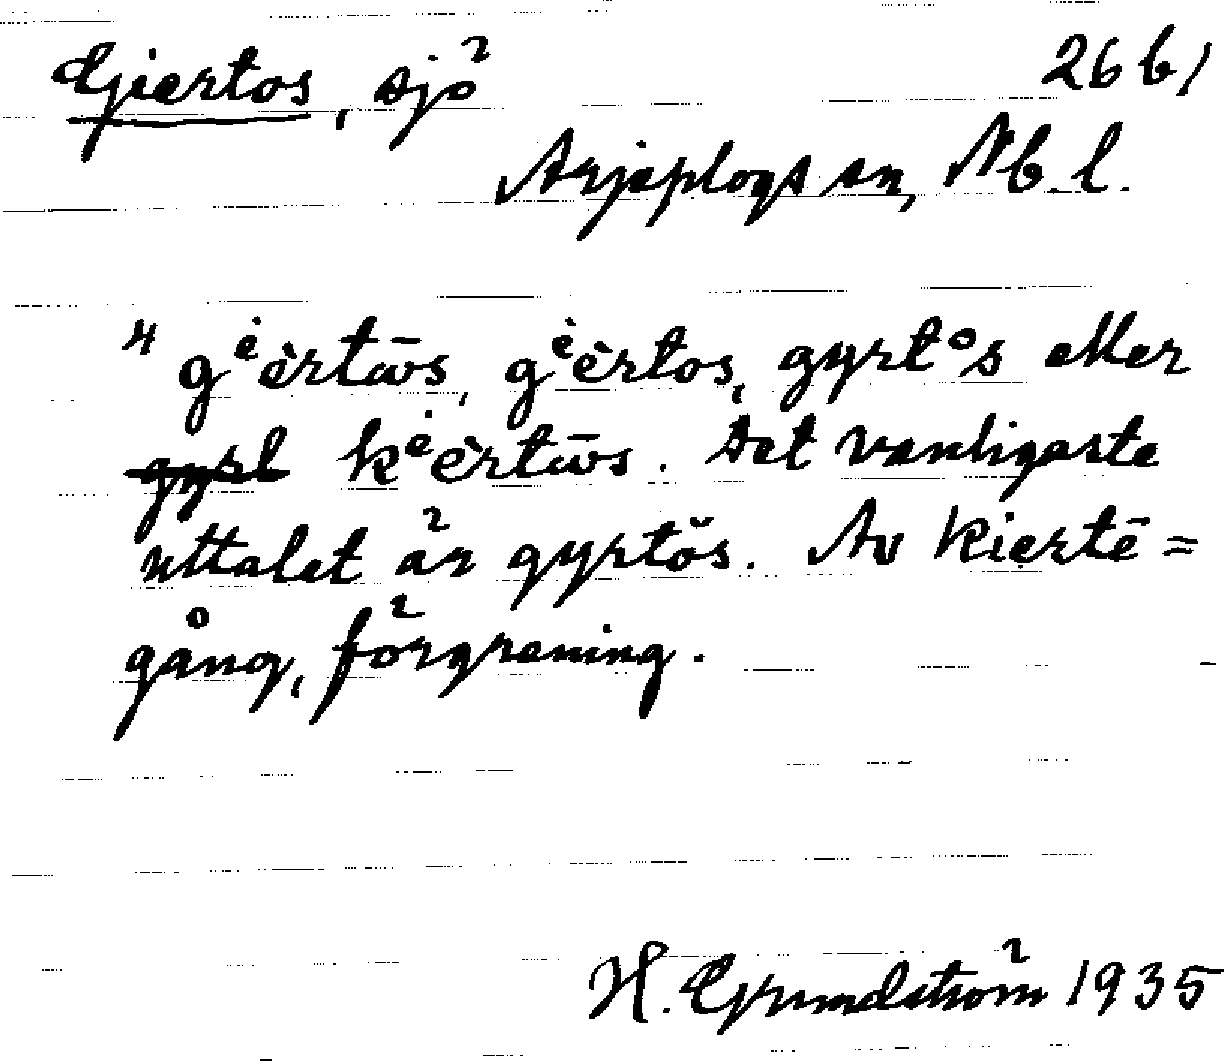 Giertos, sjö 26 b1
Arjeplogs sn, Nb. l.
" gėèrtω̄s, gėèrtos, gyrtos eller
gyrl kėèrtω̄s. Det vanligaste
uttalet är gyrtŏs. Av kiertē =
gång, förgrening.
H. Grundström 1935